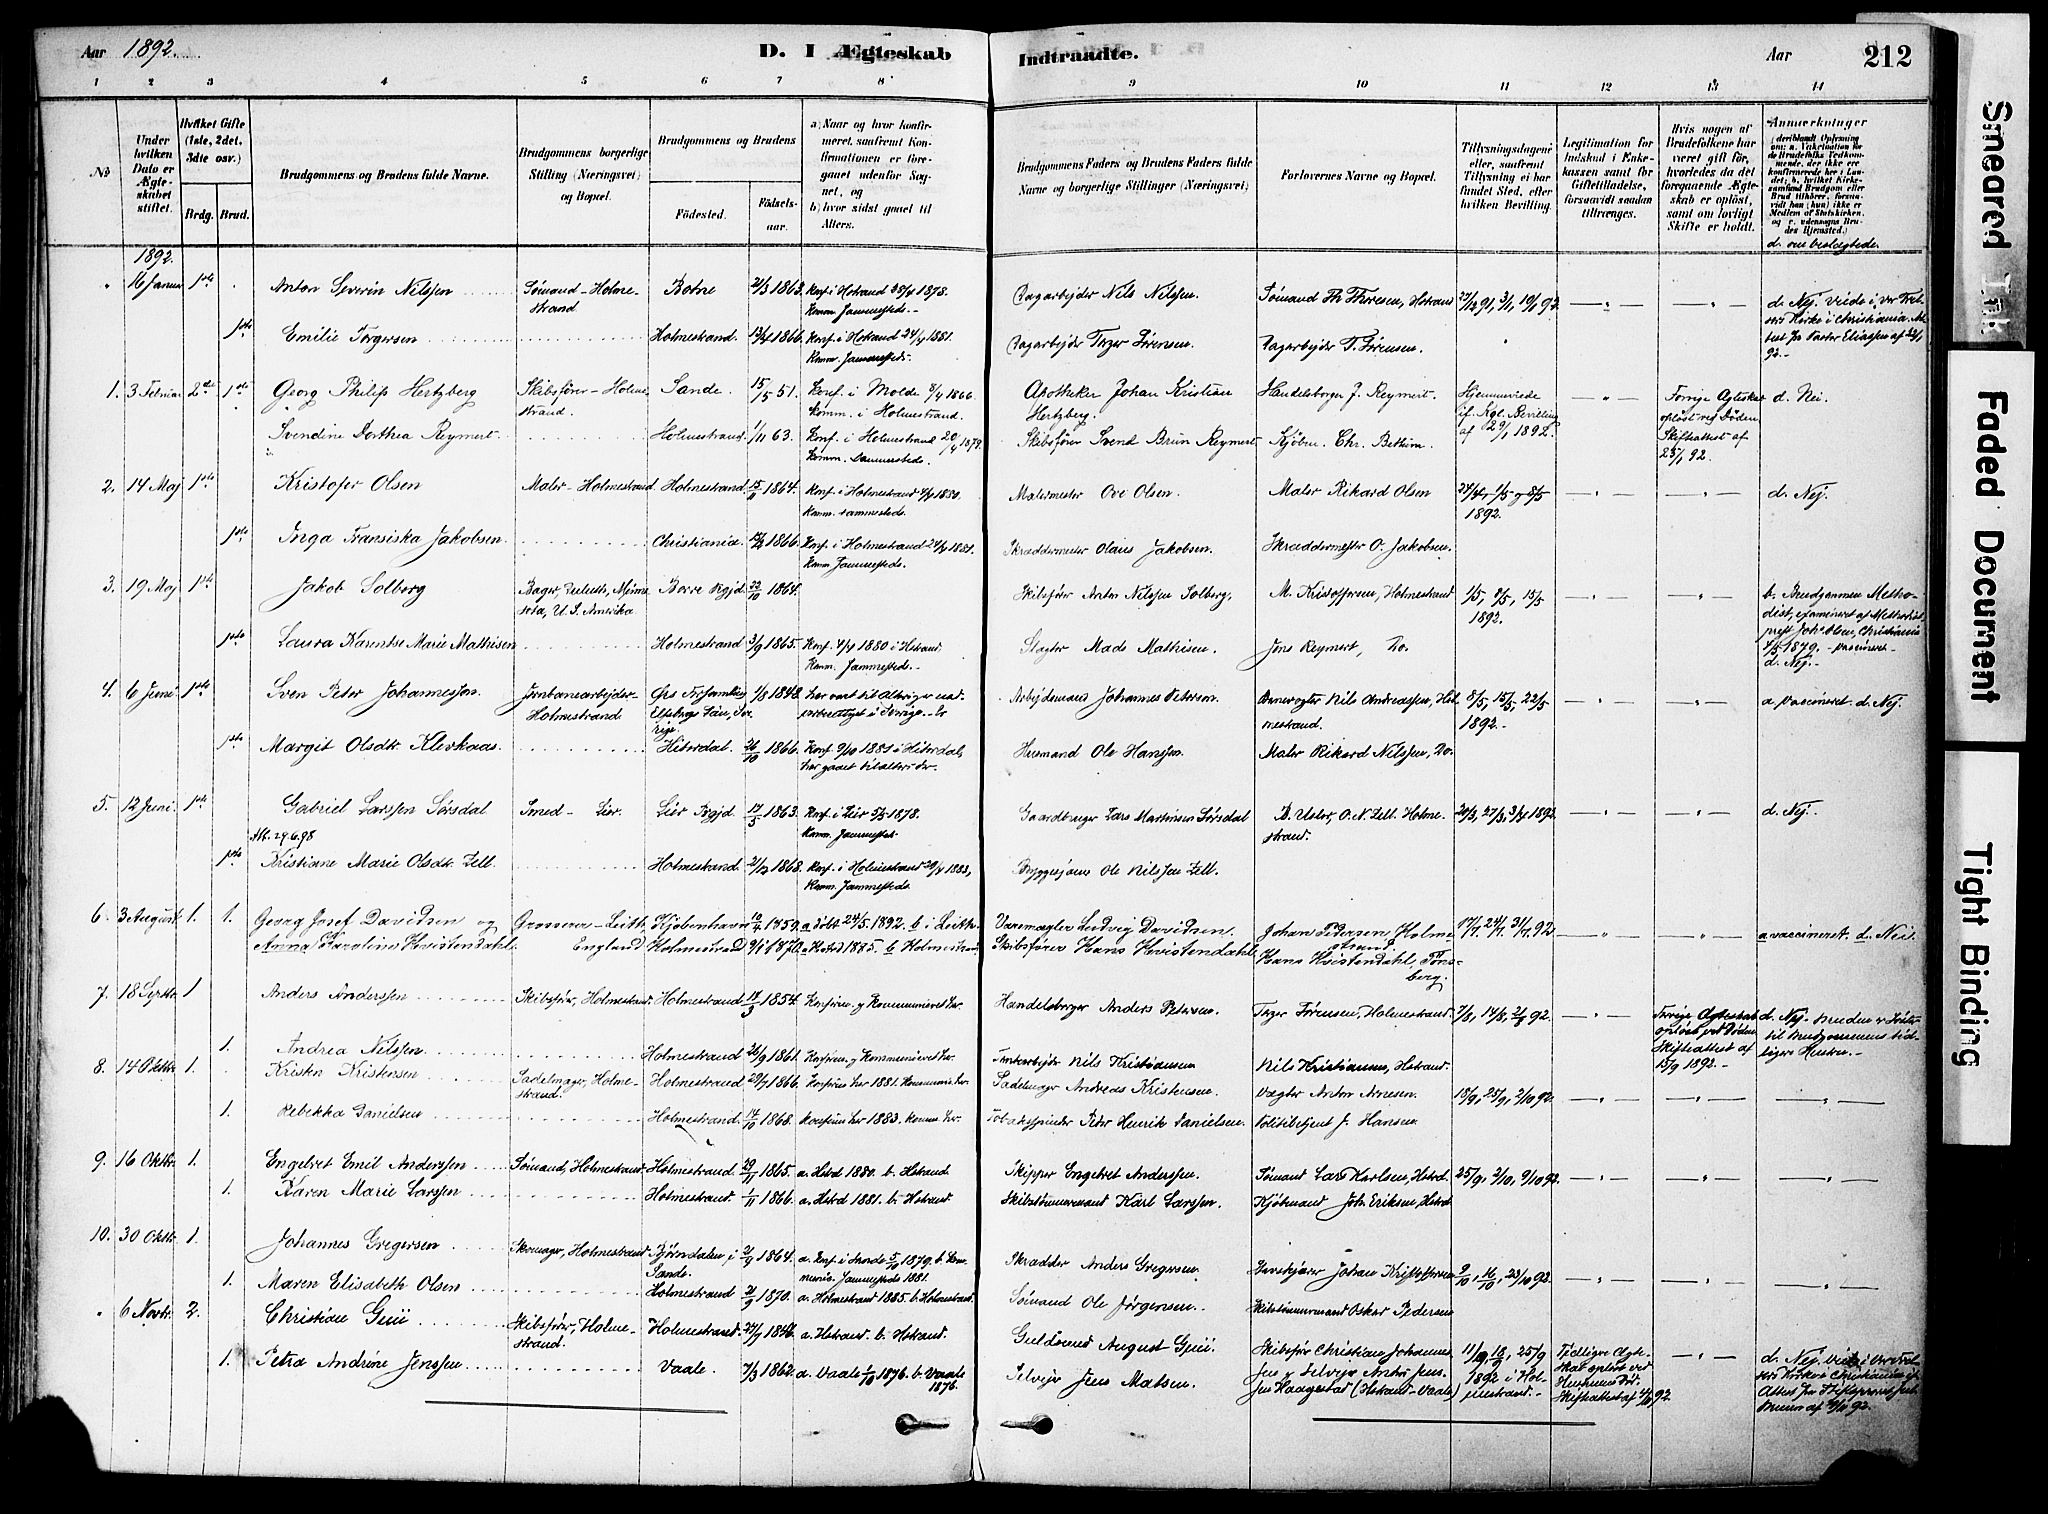 Aar 1892. D. I Ægteskab Indtraadte. Aar 212
1 2 3 4 5 6 7 8 9 10 11 12 13 14
No
Under hvilken Dato er Ægteskabet stiftet.
Hvilket Gifte (1ste, 2det, 3die osv.)
Brdg. Brud.
Brudgommens og Brudens fulde Navne.
Brudgommens borgerlige Stilling (Næringsvei) og Bopæl.
Brudgommens og Brudens
Fødested. Fødselsaar.
a) Naar og hvor konfirmeret, saafremt Konfirmationen er foregaaet udenfor Sognet, og
b) hvor sidst gaaet til Alters.
Brudgommens Faders og Brudens Faders fulde Navne og borgerlige Stillinger (Næringsvei)
Forlovernes Navne og Bopæl.
Tillysningsdagene eller, saafremt Tillysning ei har fundet Sted, efter hvilken Bevilling.
Legitimation for Indskud i Enkekassen samt for Giftetilladelse, forsaavidt saadan tiltrænges.
Hvis nogen af Brudefolkene har været gift før, hvorledes da det foregaaende Ægteskab er opløst, samt om lovligt Skifte er holdt.
Anmærkninger
d. om beslægtede.
1892.
" 16 Januar 1ste Anton Severin Nilssen Sømand - Holmestrand Botne 2/3 1863. Konf. i Hstrand 1878. Komm. sammesteds. Dagarbejder Nils Nilssen. Sømand Th. Thoresen, Hstrand
1ste Emilie Torgersen Holmestrand. 1866. Konf. i Hstrand 24/4 1881. Komm. sammesteds. Dagarbejder Torger Sørensen. Dagarbejder T. Sørensen.
1. 3 Februar 2den 1ste Georg Philip Hertzberg Skibsfører - Holmestrand. Sande. 15/5 51. Konf. i Molde 8/4 1866. Komm. i Holmestrand. Apotheker Johan Kristian Hertzberg. Handelsborger J. Reymert. Hjemmeviede if. Kgl. Bevilling af 29/1 1892. Forrige Ægteskab opløst ved Døden. Skifteattest af 25/1 92. d. Nei.
Svendine Dorthea Reymert Holmestrand. 1/11 63. Konf. i Holmestrand 20/4 1879. Komm. sammesteds. Skibsfører Svend Brun Reymert. Kjøbm. Chr. Bettum.
2. 14 Maj 1ste Kristofer Olsen Maler - Holmestrand Holmestrand. 1864. Konf. i Holmestrand 1880. Komm. sammesteds. Malermester Ove Olsen. Maler Rikard Olsen 24/4, 1/5 og 8/5 1892. d. Nej.
1ste Inga Fransiska Jakobsen Christiania 1866. Konf. i Holmestrand 24/4 1881. Komm. sammesteds. Skræddermester Olaus Jakobsen. Skræddermester O. Jakobsen.
3. 19 Maj 1ste Jakob Solberg Bager, Duluth, Minnesota, U. S. Amerika Borre Pgjd. 22/10 1864. Skibsfører Anton Nilssen Solberg. M. Kristoffersen, Holmestrand 1/5, 8/5, 15/5 1892. b. Brudgommen Methodist, examineret af Methodistprest Joh. Olsen, Christiania 1879. - vaccineret - d. Nej.
1ste Laura Karentse Marie Mathisen Holmestrand 3/9 1865. Konf. 4/4 1880 i Hstrand. Komm. sammesteds. Slagter Mads Mathisen. Jens Reymert, Do.
4. 6 Juni 1ste Sven Peter Johannessen. Jernbanearbejder - Holmestrand Ørs Forsamling, Elfsborgs Län, Sverige 1/8 1848. Arbejdsmand Johannes Peterson. Banevogter Nils Andreassen, Holmestrand. 8/5, 15/5, 22/5 1892. - a. vaccineret. d. Nej.
1ste Margit Olsdtr. Klevkaas Hiterdal. 26/10 1866. Konf. 9/10 1881 i Hiterdal, har gaaet til alters her. Husmand Ole Hanssen. Maler Rikard Nilssen, Do.
5. 12 Juni 1ste Gabriel Larssen Sørsdal Smed - Lier. Lier Pgjd. 17/5 1863. Konf. i Lier 1878. Komm. sammesteds. Gaardbruger Lars Martinsen Sørsdal 20/3, 27/3, 3/4 1892 d. Nej.
Att. 29.6.98
1ste Kristiane Marie Olsdtr. Zell. Holmestrand. 21/12 1868. Konf. i Holmestrand 29/4 1883, Komm. sammesteds. Ole Nilssen Zell.
6. 3 August 1. 1. Georg Josef Davidsen og Grosserer - Leith, Kjøbenhavn 1859. a. døbt 24/5 1892. b. i Leith Varemægler Ludvig Davidsen. Johan Pedersen Holmestrand. 17/7, 24/7, 31/7 92 a. vaccineret. d. Nei.
Anna Karoline Hvistendahl England Holmestrand 9/1 1870. a. Hstrd 1885. b. Holmestrand. Skibsfører Hans Hvistendahl. Hans Hvistendahl, Tønsberg.
7. 18 Septbr. 1 Anders Anderssen Skibsfør., Holmestrand. Holmestrand. 17/3 1854. Konfirm. og Kommuniceret her. Handelsborger Anders Petersen. Torger Sørensen, Holmestrand. 7/8, 14/8, 21/8 92. Forrige Ægteskab opløst ved Døden. Skifteattest af 15/9 1892. d. Nej. Bruden er Søster til Brudgommens tidligere Hustru.
1. Andrea Nilssen Holmestrand 26/9 1861. Konfirm. og Kommuniceret her. Nils Kristiansen Nils Kristiansen, Hstrand.
8. 14 Oktbr. 1. Kristen Kristensen Sadelmager, Holmestrand. Holmestrand 29/7 1866. Konfirm. her 1881. Sadelmager Andreas Kristensen. Vægter Anton Arnesen. 18/9, 25/9, 2/10 92.
1. Rebekka Danielsen Holmestrand. 14/10 1868. Konfirm. her 1883. Komm. her. Tobakspinder Peter Henrik Danielsen. Politibetjent J. Hansen
9. 16 Oktbr. 1. Engelvet Emil Anderssen Sømand, Holmestrand. Holmestrand. 29/11 1865. a. Hstrd 1880. b. Hstrand Skipper Engelvet Anderssen. Sømand Lars Karlsen, Hstrd. 25/9, 2/10, 9/10 92.
1. Karen Marie Larssen Holmestrand. 1/11 1866. a. Hstrd 1881. b. Hstrand Skibstømmermand Karl Larssen. Kjøbmand Joh. Eriksen, Hstrd
10. 30 Oktbr. 1. Johannes Gregersen Skomager, Holmestrand Bjørndalen i Sande. 2/9 1864. a. Konf. i Sande 5/10 1879. b. Kommunic. sammesteds 1881. Skrædder Anders Gregersen. Johan Kristoffersen 9/10, 16/10, 23/10 92.
1. Maren Elisabeth Olsen Holmestrand 21/9 1870. a. Holmestrand 1885. b. Holmestrand. Sømand Ole Jørgensen. Skibstømmermand Oskar Pedersen
" 6 Novbr. 2. Christian Giüi Skibsfør., Holmestrand. Holmestrand. 1846. a. Hstrand. b. Hstrand. Guldsmed August Giüi. Skibsfør. Christian Johannesen og Selvejer Anders Jensen Haagestad (Hstrand - Vaale) 11/9, 18/9, 25/9 1892 i Holmestrand. Tidligere Ægteskab opløst ved Hustruens Død. Skifteattest af 4/10 92.
1. Petra Andrine Jenssen Vaale. 7/3 1862. a. Vaale 1/10 1876. b. Vaale 1876. Selvejer Jens Matsen. d. Nej.
Smeared Ink
Faded Document
Tight Binding